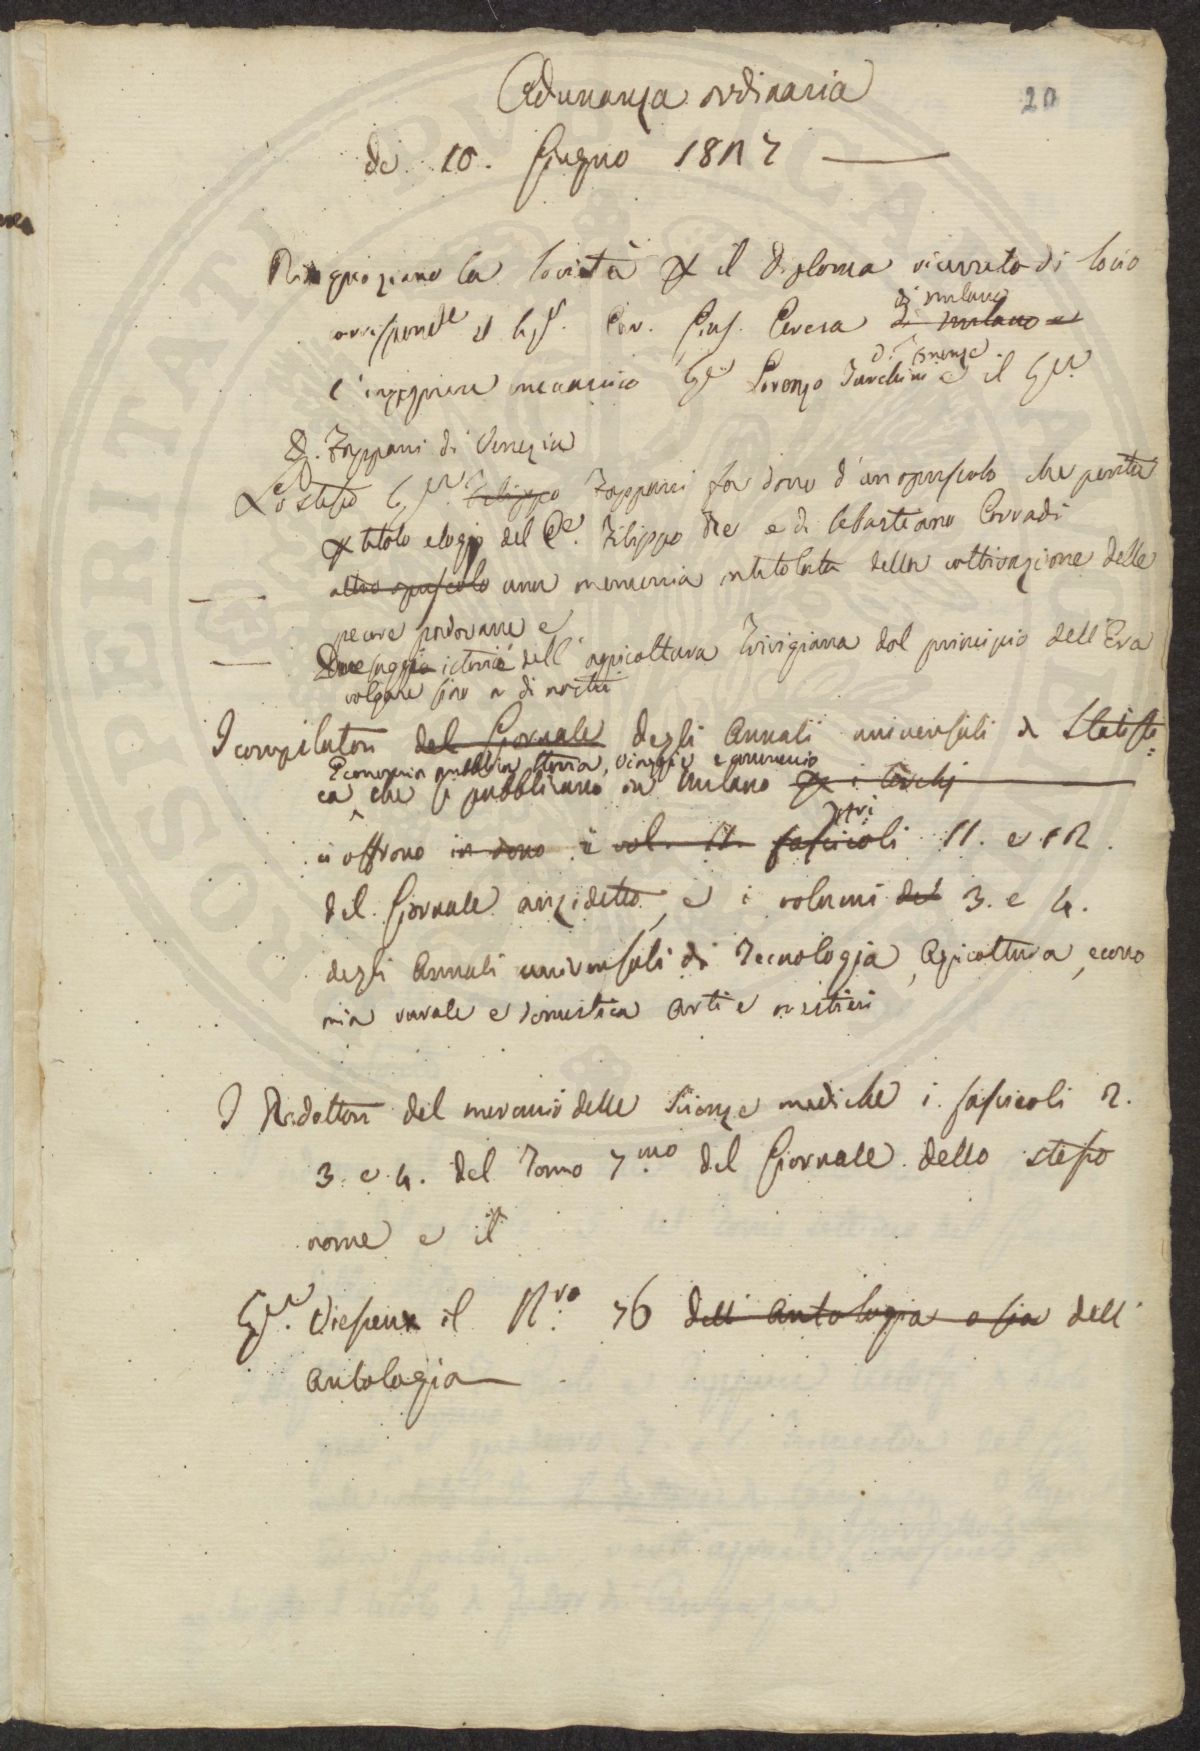 Adunanza ordinaria
20
de 10. Giugno 1827
Ringraziano la Società il diploma ricevuto di Socio
corrispond.te il Sig.r Cav. Gius. Cevesa di milano
di milano e
l'ingegnere meccanico Sig.r Lorenzo Turchini e il Sig.r
di Firenze
D. Zoppani di Venezia
Lo stesso Sig.r Filippo Zoppani fa dono d'un opuscolo che porta
titolo elogio del C.e Filippo Re e di Sebastiano Corradi
altro opuscolo una memoria intitolata della coltivazione delle
pecore padovane e
Due saggio istorico dell'agricoltura Trivigiana dal principio dell'Era
volgare sino a dì nostri
I compilatori del Giornale degli Annali universali di Statisti=
Economia pubblica, storia, viaggi e commercio
ca che si pubblicano in Milano i
offrono in dono i vol. 11. fascicoli 11. e 12.
del Giornale anzidetto, e i volumi del 3. e 4.
degli Annali universali di Tecnologia, Agricoltura, econo
mia rurale e domestica arti e mestieri
I Redattori del mercurio delle Scienze mediche i fascicoli 2.
3. e 4. del Tomo 7.mo del Giornale dello stesso
nome e il
Sig.r Viesseux il N.ro 76 dell'Antologia o sia dell'
Antologia